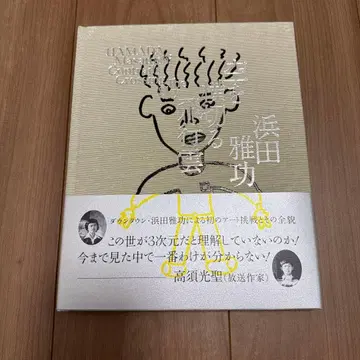 HAMADA
MASATOSHI
浜田
雅功
空を横切る
飛行雲
ダウンタウン・浜田雅功による初のアート挑戦とその全貌
この世が3次元だと理解していないのか!
今まで見た中で一番わけが分からない!
高須光聖(放送作家)